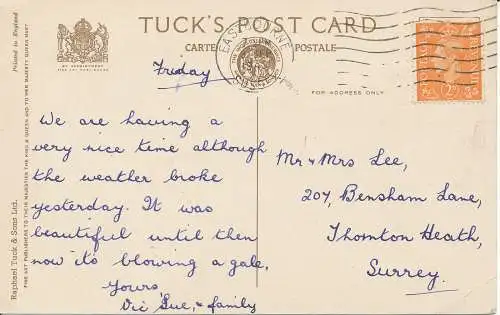 TUCK'S POST CARD
CARTE POSTALE
EASTBOURNE
SUSSEX
FOR ADDRESS ONLY
Printed in England
BY APPOINTMENT
Raphael Tuck & Sons Ltd.
FINE ART PUBLISHERS TO THEIR MAJESTIES THE KING & QUEEN AND TO HER MAJESTY QUEEN MARY
Friday
We are having a
very nice time although
the weather broke
yesterday. It was
beautiful until then
now it's blowing a gale.
Yours,
Vic Sue, & family
Mr & Mrs Lee,
207, Bensham Lane,
Thornton Heath,
Surrey.